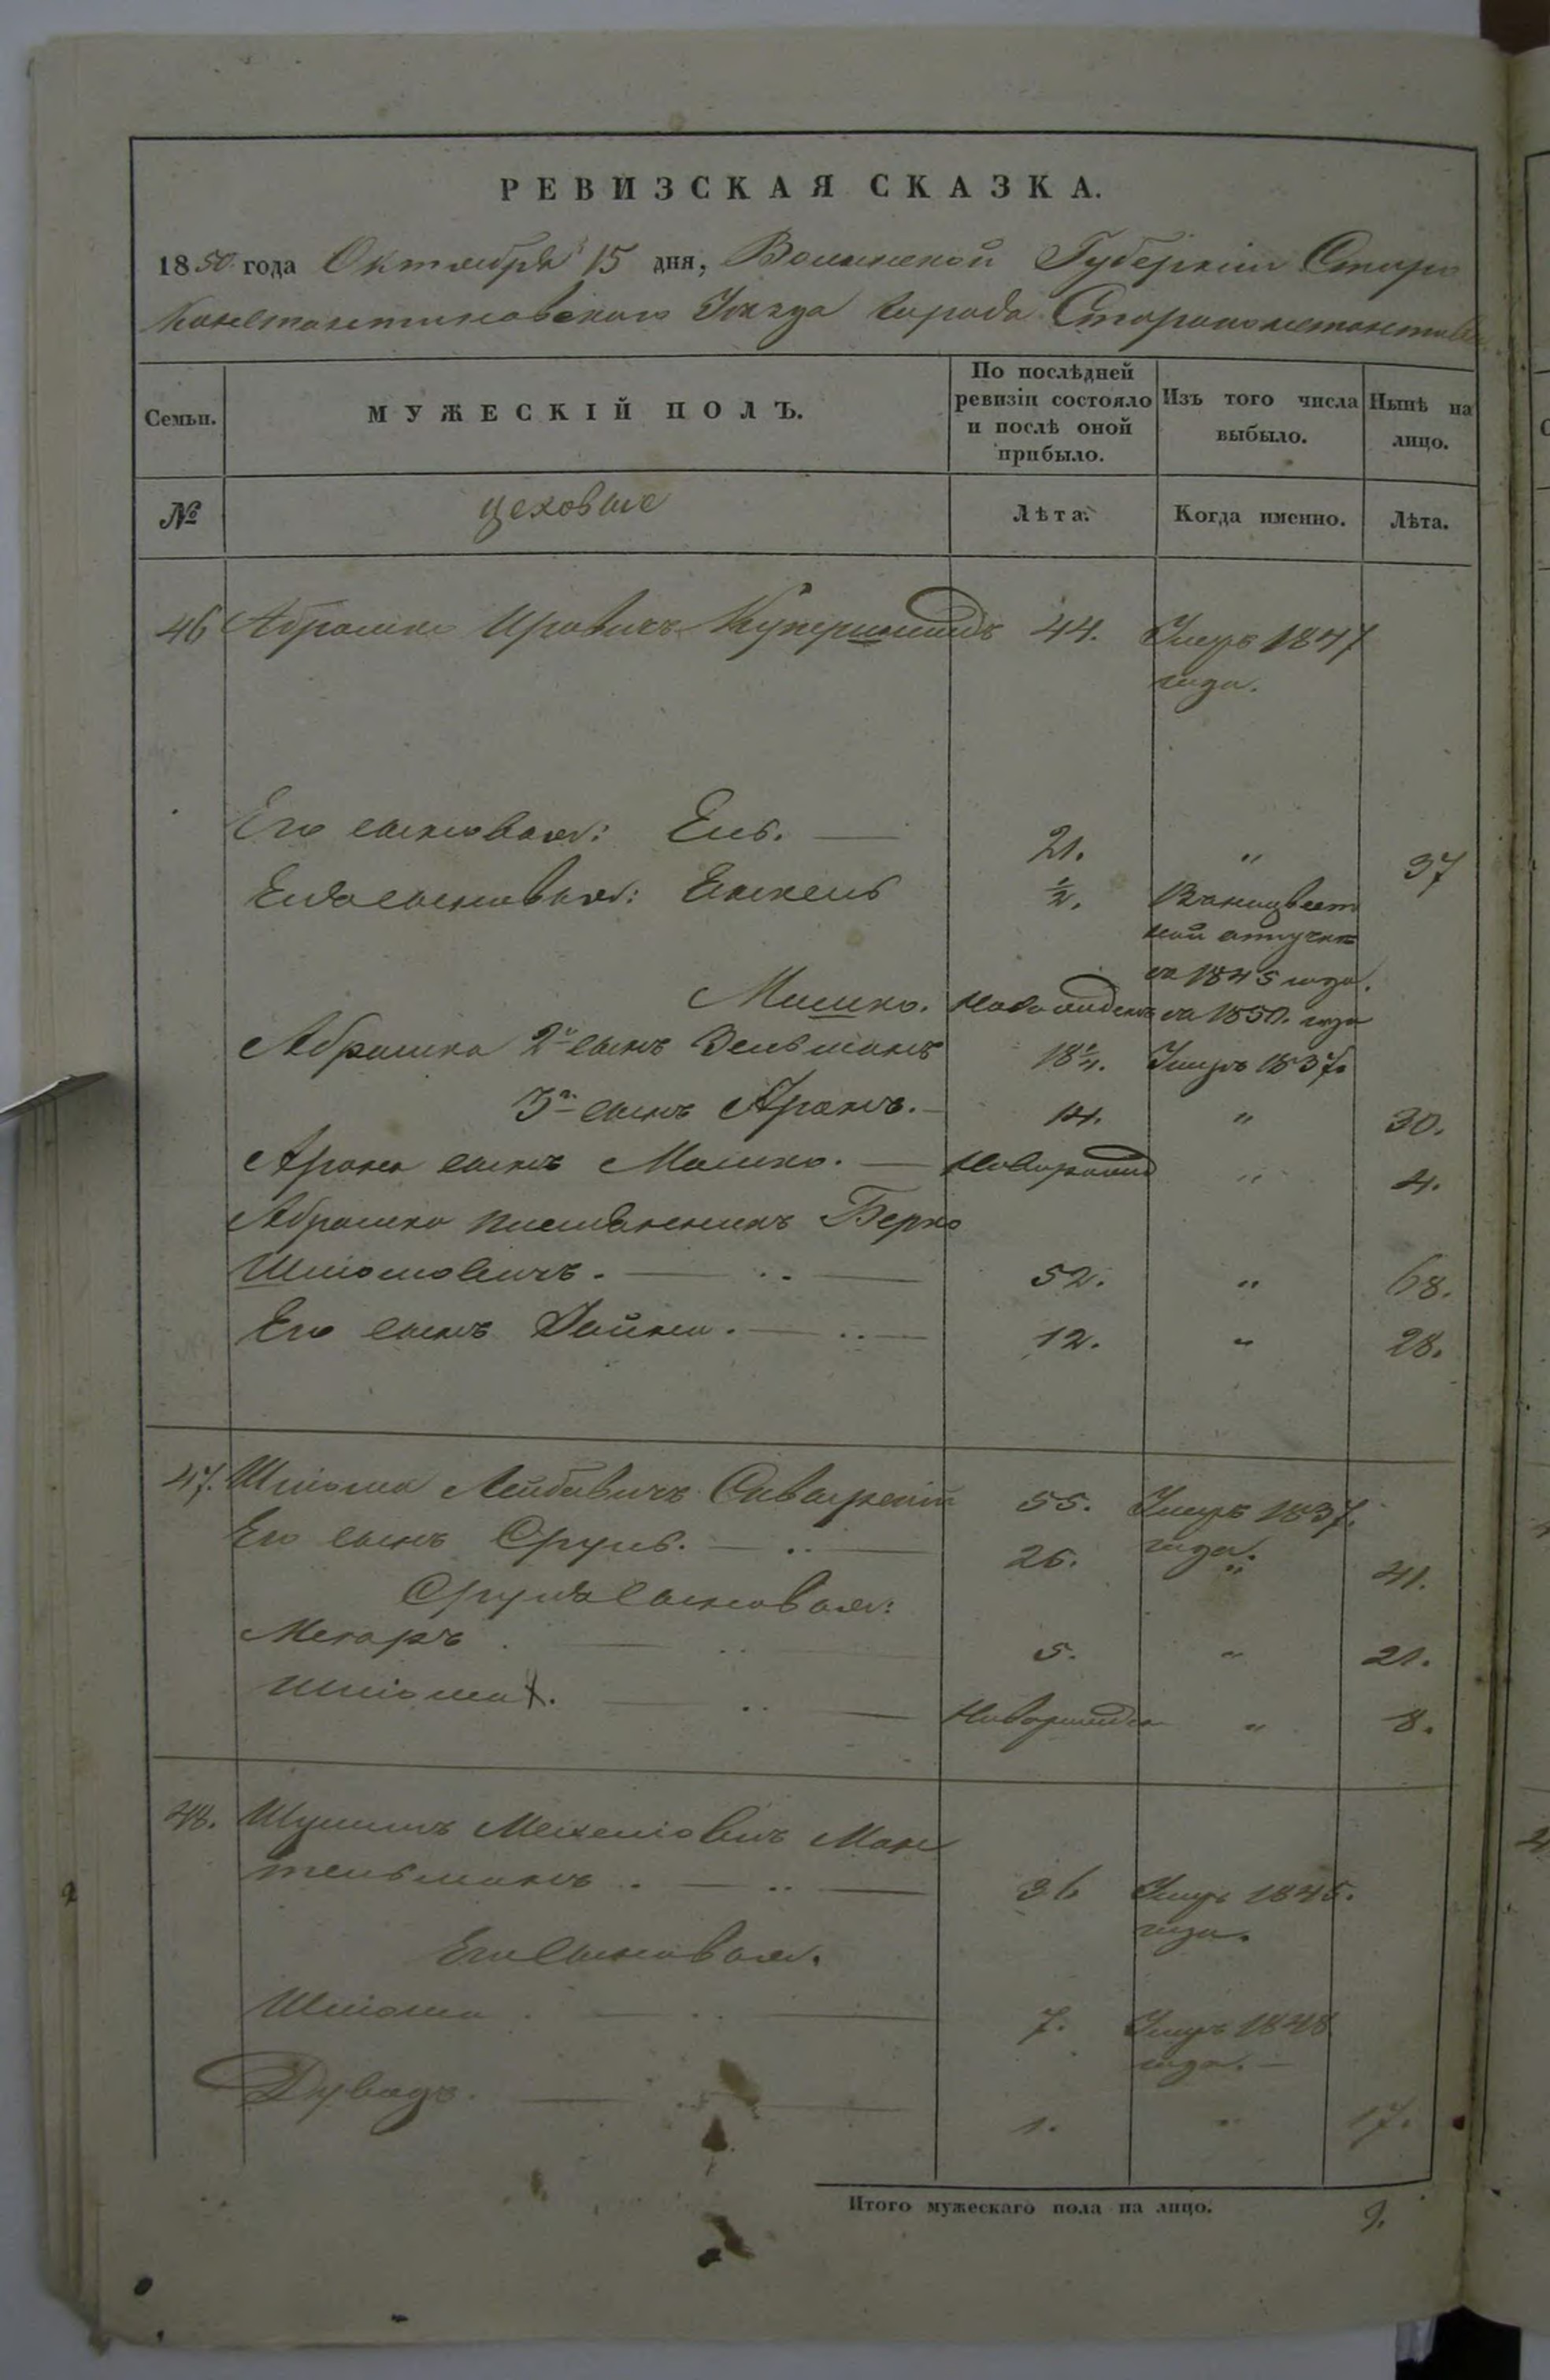 РЕВИЗСКАЯ СКАЗКА.
1850 года Октября 15 дня, Волынской Губернiи Старо
Константиновскаго Уѣзда города Староконстантинова
Семьи.
МУЖЕСКІЙ ПОЛЪ.
По послѣдней ревизіи состояло и послѣ оной прибыло.
Изъ того числа выбыло.
Нынѣ на лицо.
№
цеховые
Лѣта.
Когда именно.
Лѣта.
46 Абрамко Ировичъ Купершмидъ 44. Умеръ 1847
года.
Его сыновья: Ель. — 21. " 37
Еля сыновья: Хаскель ½. В неизвест
ной отлучке
съ 1845 года.
Мошко. съ 1850. года
Абрамка 2й сынъ Зельманъ 18¼. Умеръ 1837.
3й сынъ Аронъ. — 14. " 30.
Арона сынъ Мошко. — Новорожд " 4.
Абрамка племянникъ Берко
Шліомовичъ. — .. — 52. " 68.
Его сынъ Хаймъ. — .. — 12. " 28.
47. Шліома Лейбовичъ 55. Умеръ 1837.
года.
Его сынъ Сруль. — .. — 25. " 41.
Сруля сыновья:
Меюръ . — .. — 5. " 21.
Шліома. — .. — Новорожден " 8.
48. Шулимъ Мехелiовичъ Ман
тельманъ . — .. — 36 Умеръ 1845.
года.
Его сыновья.
Шліома . — .. — 7. Умеръ 1848
года. —
Дувидъ. — .. — 1. " 17.
Итого мужескаго пола на лицо. 9.